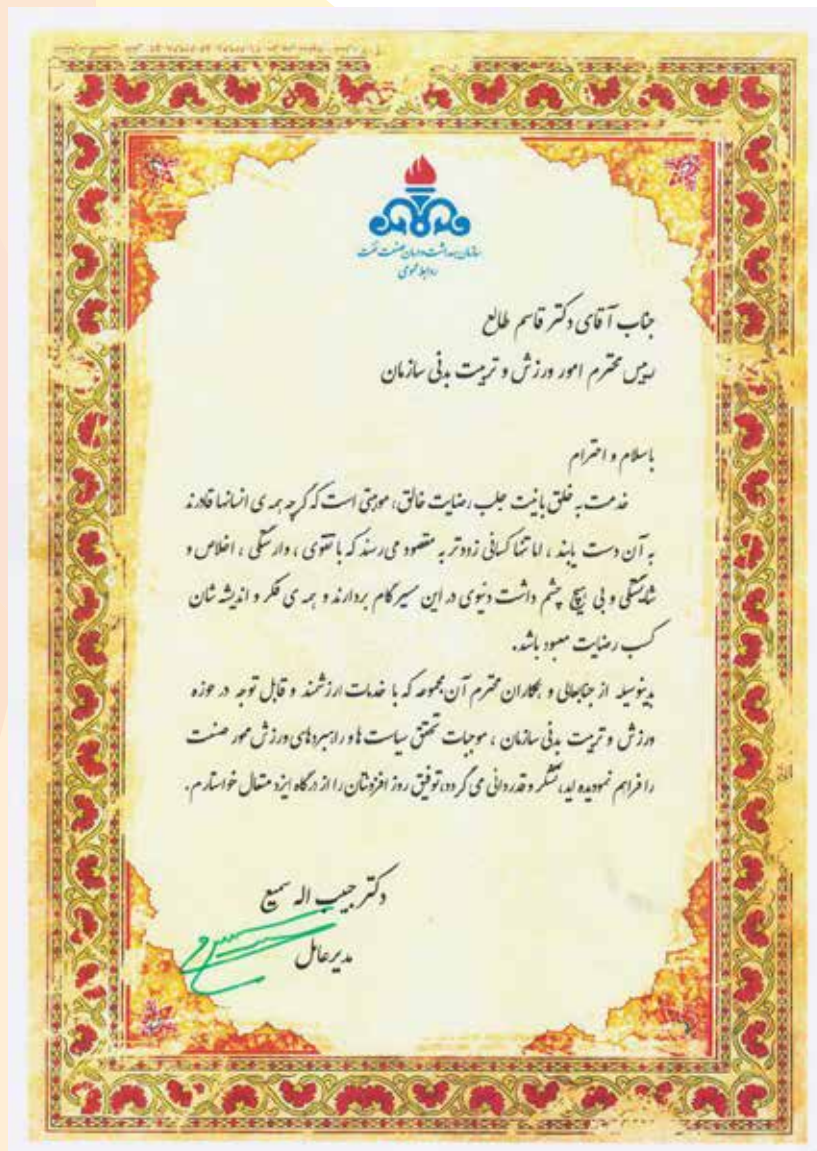 سازمان بهداشت و درمان صنعت نفت
روابط عمومی
جناب آقای دکتر قاسم طالع
رییس محترم امور ورزش و تربیت بدنی سازمان
باسلام و احترام
خدمت به خلق بانیت جلب رضایت خالق، موهبتی است که گرچه همه ی انسانها قادرند
به آن دست یابند ، اما تنها کسانی زودتر به مقصود می رسند که با تقوی ، وارستگی ، اخلاص و
شایستگی و بی هیچ چشم داشت دنیوی در این مسیر گام بردارند و همه ی فکر و اندیشه شان
کسب رضایت معبود باشد.
بدینوسیله از جنابعالی و همکاران محترم آن مجموعه که با خدمات ارزشمند و قابل توجه در حوزه
ورزش و تربیت بدنی سازمان ، موجبات تحقق سیاست ها و راهبردهای ورزش محور صنعت
را فراهم نموديده اید، تشکر و قدردانی می گردد، توفیق روز افزونتان را از درگاه ایزد متعال خواستارم.
دکتر حبیب اله سمیع
مدیرعامل